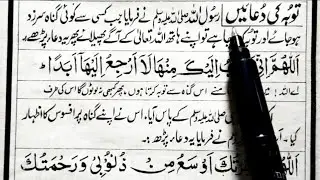 توبہ کی دعائیں رسول اللہ صلی اللہ علیہ وسلم نے فرمایا جب کسی سے کوئی گناہ سرزد
ہو جائے اور توبہ کرنا چاہتا ہے تو اپنے ہاتھ اللہ تعالیٰ کے آگے پھیلائے پھر یہ دعا پڑھے،
اَللّٰهُمَّ اِنِّیْ اِلَیْكَ مِنْهَا لَا اَرْجِعُ اِلَیْهَا اَبَدًا
اے اللہ! میں اس گناہ سے توبہ کرتا ہوں، پھر کبھی نہ لوٹوں گا اس کی طرف
صلی اللہ علیہ وسلم کے پاس آیا۔ اس نے اپنے گناہ پر افسوس کا اظہار
کیا نے فرمایا یہ دعا پڑھ،
اَوْسَعُ مِنْ ذُنُوْبِیْ وَرَحْمَتُكَ